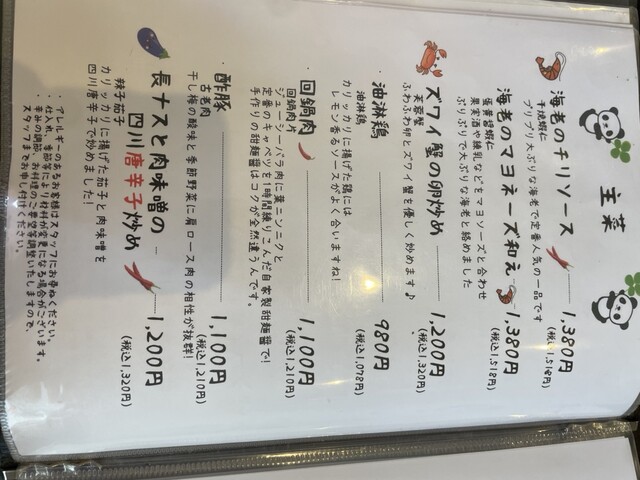 主菜
海老のチリソース 1,380円
干焼蝦仁 (税込1,518円)
プリプリ大ぶりな海老で定番人気の一品です
海老のマヨネーズ和え 1,380円
蛋黄醤蝦仁 (税込1,518円)
果実酒や練乳などをマヨソースと合わせ
ぷりぷりで大ぶりな海老と絡めました
ズワイ蟹の卵炒め 1,200円
芙蓉蟹 (税込1,320円)
ふわふわ卵とズワイ蟹を優しく炒めます♪
・油淋鶏 980円
油淋鶏 (税込1,078円)
カリッカリに揚げた鶏には
レモン香るソースがよく合いますね!
・回鍋肉 1,100円
回鍋肉片 (税込1,210円)
ジューシーバラ肉に葉ニンニクと
定番のキャベツを1時間練りこんだ自家製甜麺醤で!
手作りの甜麺醤はコクが全然違うんです。
・酢豚 1,100円
古老肉 (税込1,210円)
干し梅の酸味と季節野菜に肩ロース肉の相性が抜群!
長ナスと肉味噌の
四川唐辛子炒め 1,200円
辣子茄子 (税込1,320円)
カリッカリに揚げた茄子と肉味噌を
四川唐辛子で炒めました!
・アレルギーのあるお客様はスタッフにお尋ねください。
・仕入れ、季節等により食材が変更になる場合がございます。
・辛みの調節、お料理のご要望等調整いたしますので、
スタッフまでお申し付けください。